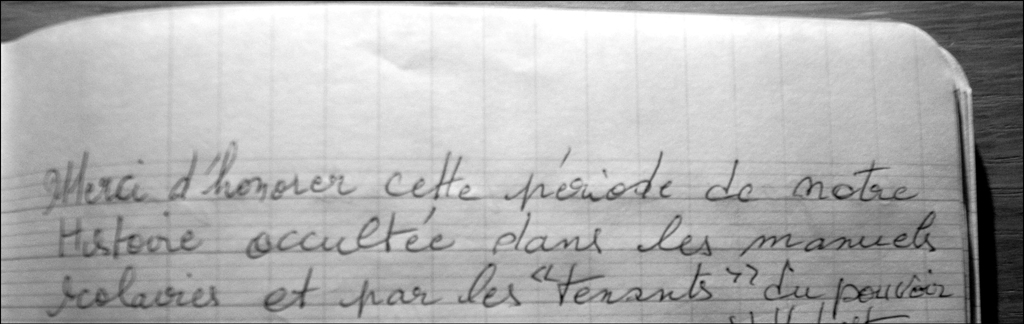 Merci d'honorer cette période de notre
Histoire occultée dans les manuels
scolaires et par les "tenants" du pouvoir